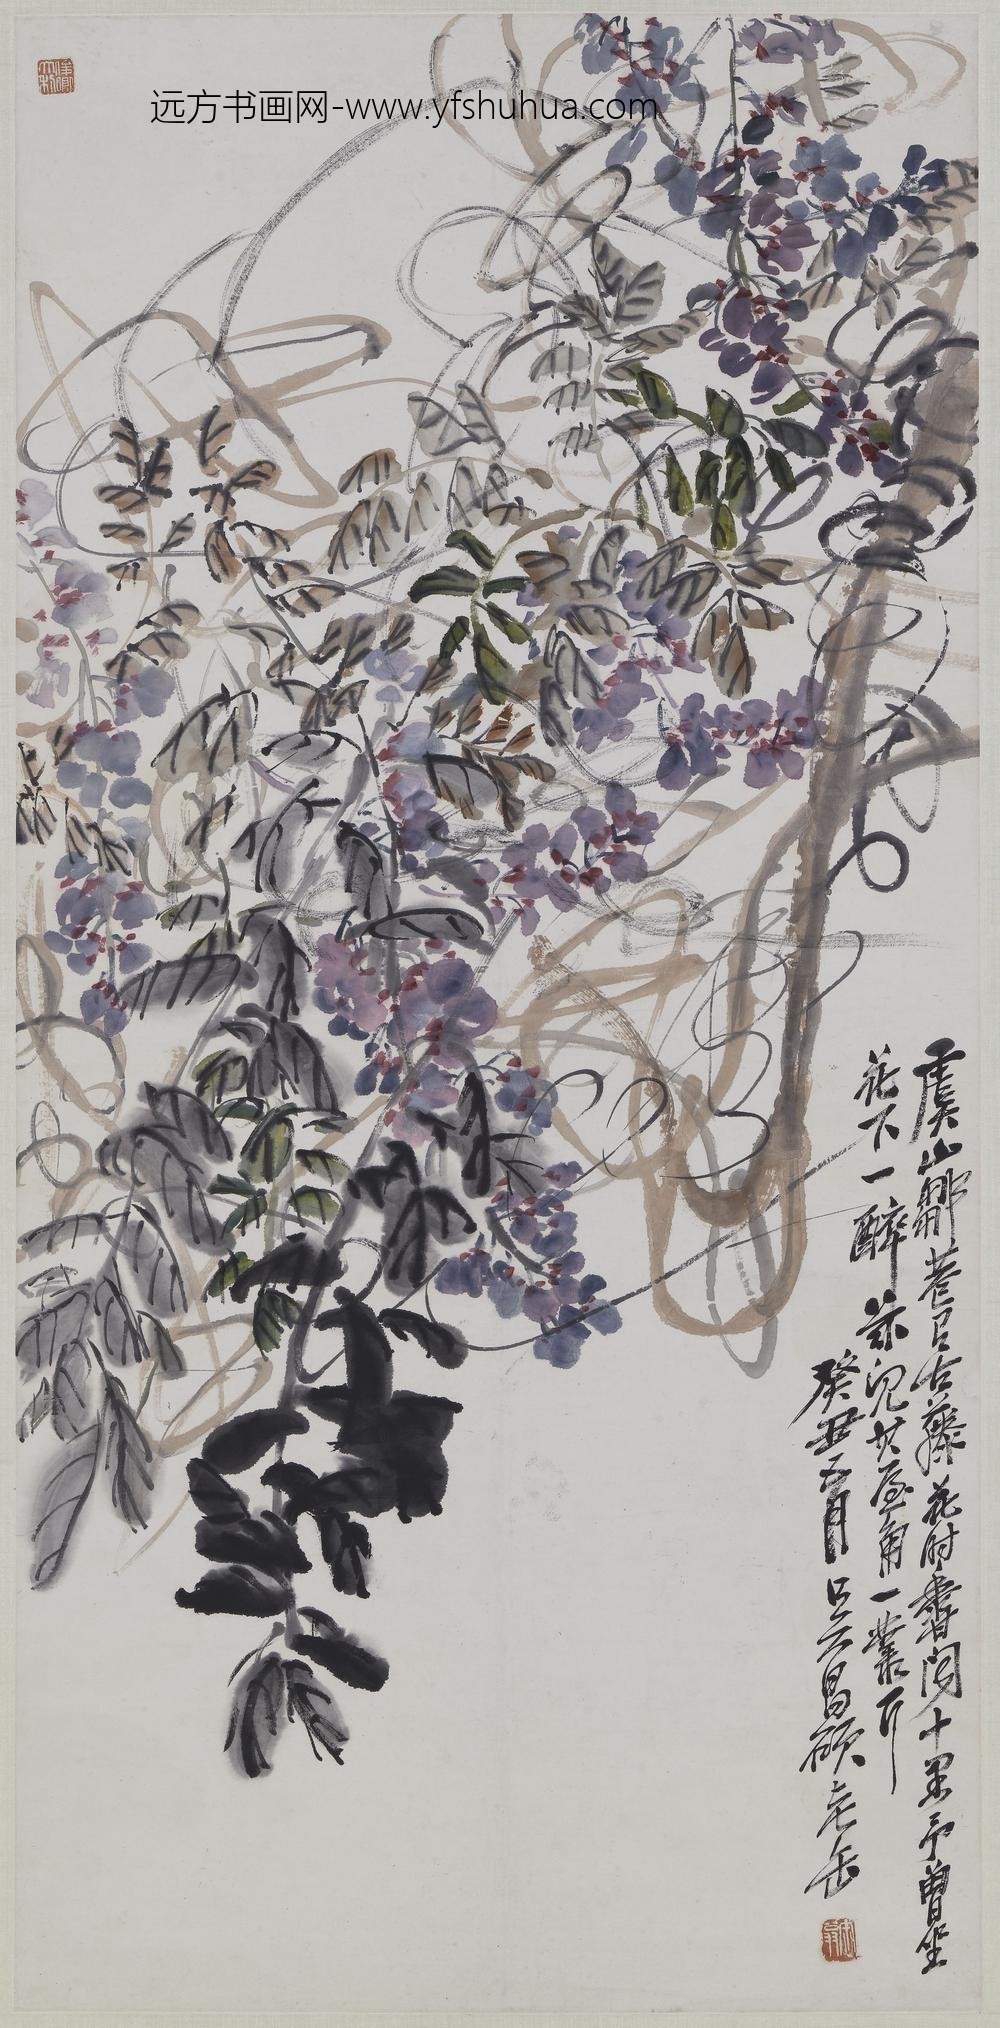 远方书画网-www.yfshuhua.com
虞山鄒巷有古藤花时香闻十里予曾坐
花下一醉兹况其屋角一丛耳
癸丑五月吴昌硕老缶